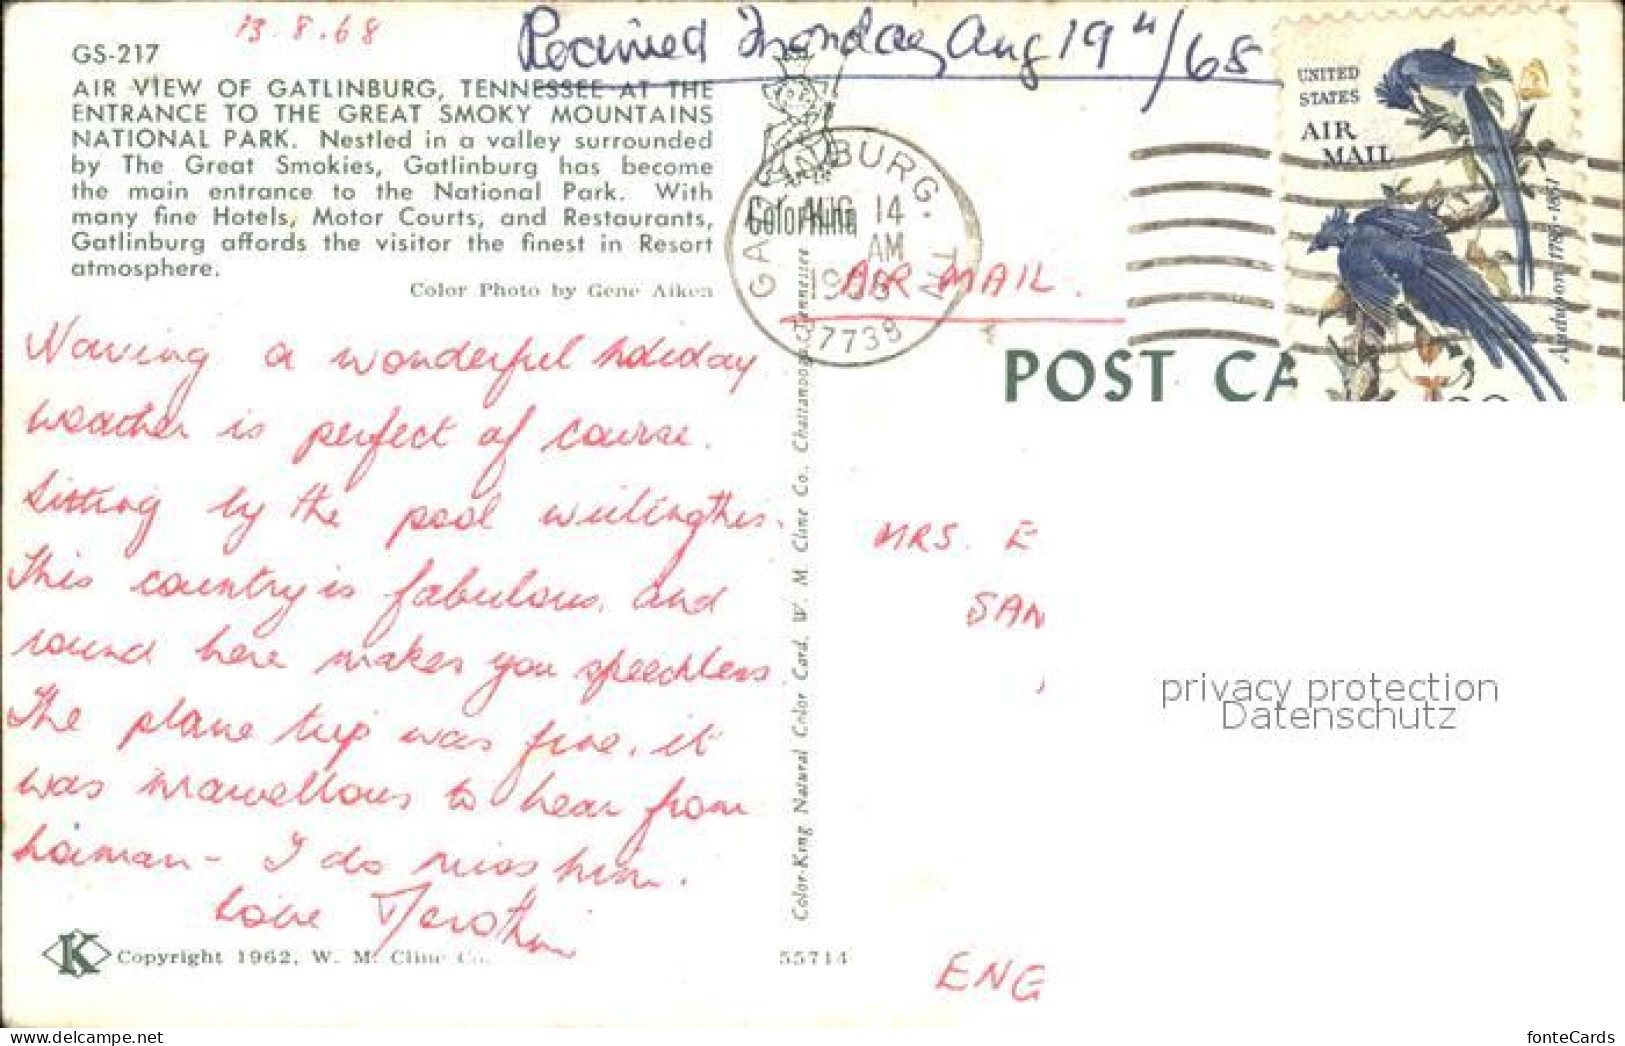 13.8.68
Received Monday Aug 19"/68
GS-217
AIR VIEW OF GATLINBURG, TENNESSEE AT THE
ENTRANCE TO THE GREAT SMOKY MOUNTAINS
NATIONAL PARK. Nestled in a valley surrounded
by The Great Smokies, Gatlinburg has become
the main entrance to the National Park. With
many fine Hotels, Motor Courts, and Restaurants,
Gatlinburg affords the visitor the finest in Resort
atmosphere.
Color Photo by Gene Aiken
Having a wonderful holiday
weather is perfect of course.
Sitting by the pool writing this.
This country is fabulous, and
round here makes you speechless.
The plane trip was fine, it
was marvellous to hear from
- I do miss him.
Love
Copyright 1962, W. M. Cline Co.
55714
Color-King Natural Color Card, W. M. Cline Co., Chattanooga, Tennessee
GATLINBURG, TN
AUG 14
AM
1968
37738
ColorKing
AIR MAIL.
UNITED
STATES
AIR
MAIL
Audubon 1785-1851
POST CA
MRS. E
SAN
ENG
privacy protection
Datenschutz
fonteCards